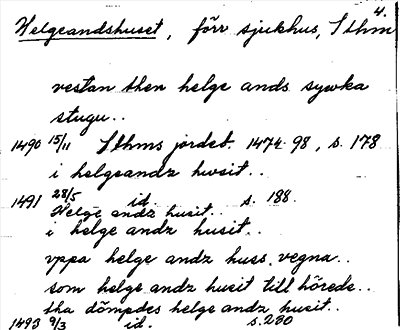 4.
Helgeandshuset, förr sjukhus, Sthm
vestan then helge ands sywka
stugu..
1490 15/11 Sthms jordeb. 1474-98, s. 178
i helgeandz hwsit..
1491 28/5 id. s. 188.
Helge andz husit..
i helge andz husit..
vppa helge andz huss vegna..
som helge andz husit till hörede..
tha dömpdes helge andz husit..
1493 9/3 id. s. 230